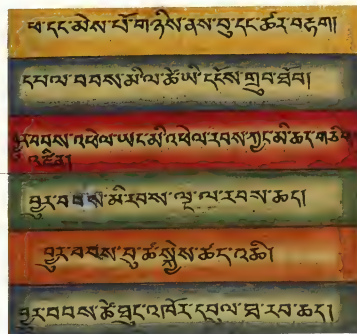 ཕ་དང་མེས་པོ་གཉིས་ནས་བུ་དང་ཚོར་བརྟག།
དཔལ་བབས་མིལ་ཚེ་ཡི་དངོས་གྲུབ་ཐོབ།
བྱུར་འབབས་འཕེལ་ཡང་མི་འཕེལ་རབས་ཀྱང་མི་ཆད་གཅིག་
འཛིན།
བྱུར་བབས་མི་རབས་ལྔ་ལ་རབས་ཆད།
བྱུར་བབས་བུ་ཚ་སྐྱེས་ཚད་འཆི།
བྱུར་བབས་ཚེ་ཐུང་འཁོར་དབུལ་ཐ་རབ་ཆད།